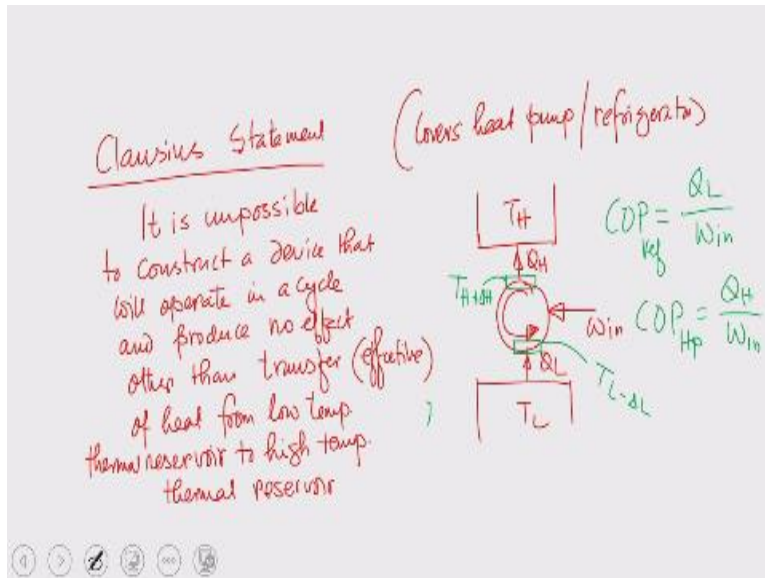 Clausius Statement
(Covers heat pump / refrigerator)
It is impossible
to construct a device that
will operate in a cycle
and produce no effect
other than transfer (effective)
of heat from low temp.
thermal reservoir to high temp.
thermal reservoir
TH
QH
TH+ΔH
Win
QL
TL-ΔL
TL
COP ref = QL / Win
COP Hp = QH / Win